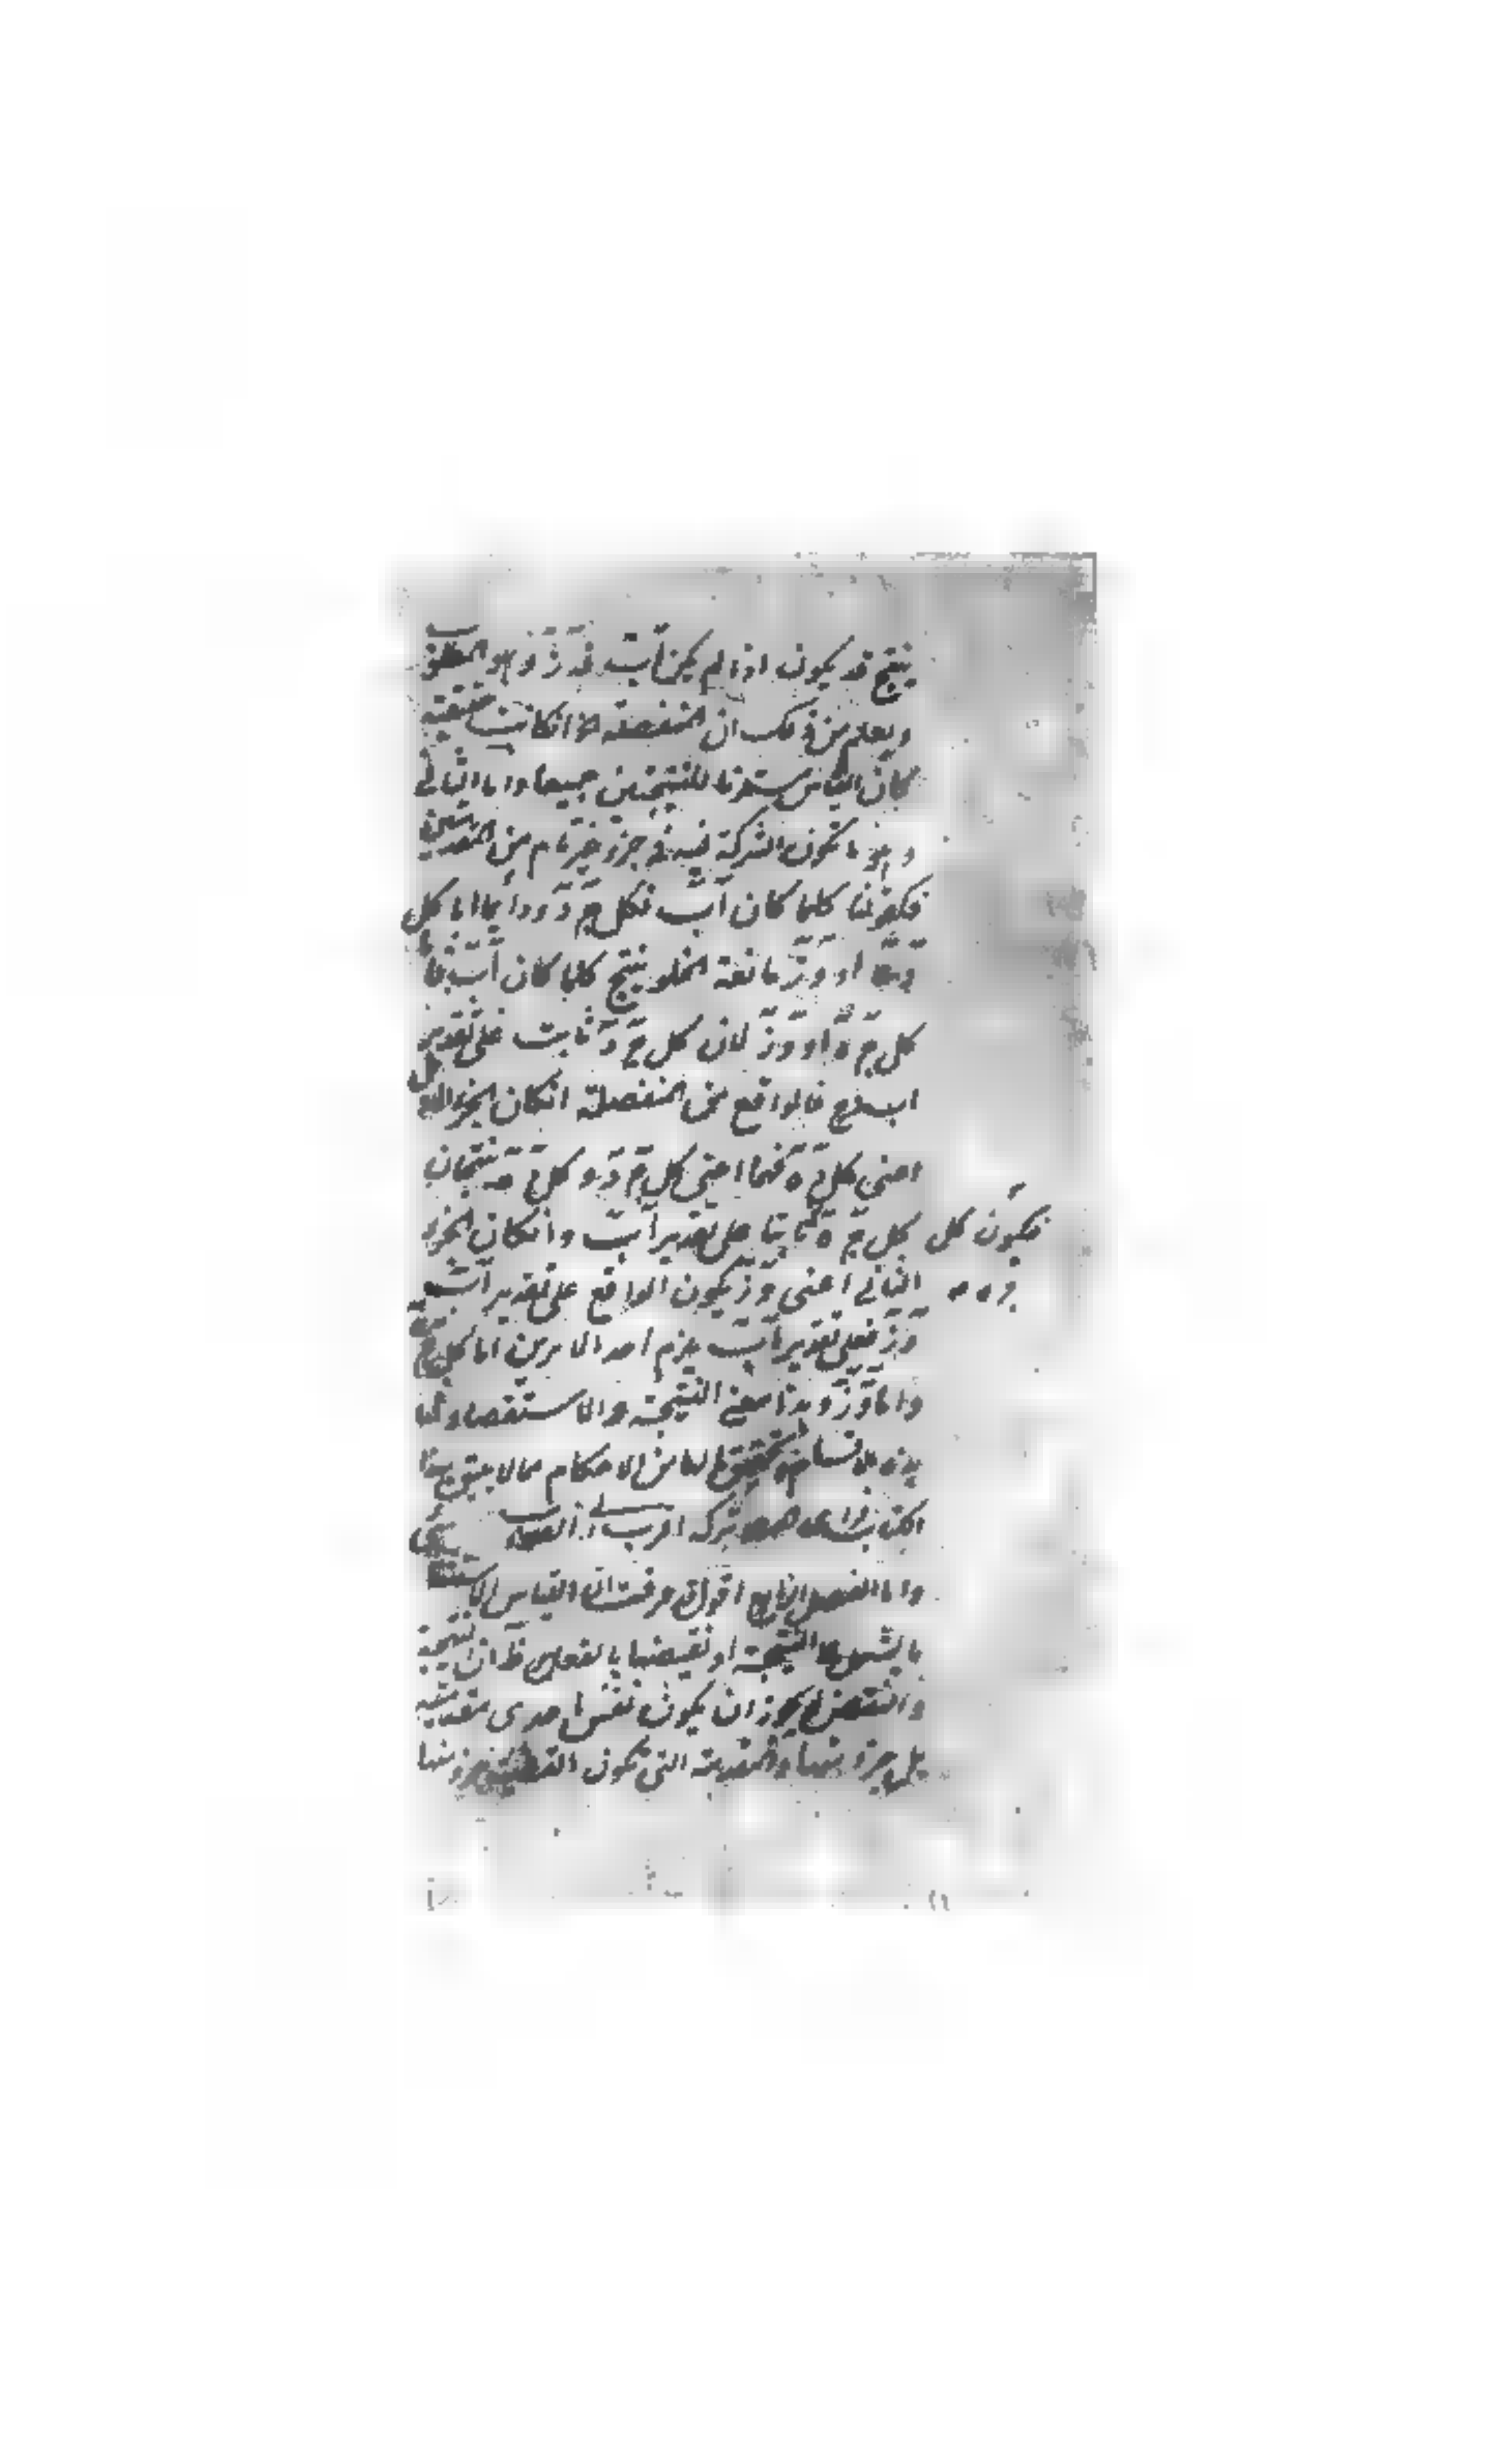 ينتج قد يكون اذا لم يكن آب فد ز وهو المطلوب
ويعلم من ذلك ان المنفصلة لو انكانت حقيقية
كان القياس مستلزما للنتيجتين جميعا واما الثاني
وهو ما تكون الشركة فيه في جزء غير تام من المقدمتين
فكقولنا كلما كان آب فكل ج د ودائما اما كل
د ه او و ز مانعة الخلو ينتج كلما كان آب فاما
كل ج ه او و ز لان كل ج د ثابت على تقدير
اب فالواقع من المنفصلة انكان الجزء الاول
اعنى كل د ه كنا اعنى كل ج د و كل د ه ينتجان
كل ج ه ثابتا على تقدير آب وانكان الجزء
فيكون كل
الثاني اعنى و ز يكون الواقع على تقدير آب
و ز فعلى تقدير آب يلزم احد الامرين اما كل ج ه
واما و ز وهذا معنى النتيجة والاستقصاء
هذه الاقسام من الاحكام مما لا يليق بهذا
الكتاب تركه اقرب الى الصواب
واما الفصل الرابع اقول قد عرفت ان القياس الاستثنائي
ما يشتمل على النتيجة او نقيضها بالفعل ان النتيجة
والنقيض لا يجوز ان يكون نفس احدى مقدمتيه
بل جزء منها والمقدمة التي تكون القضية جزء منها